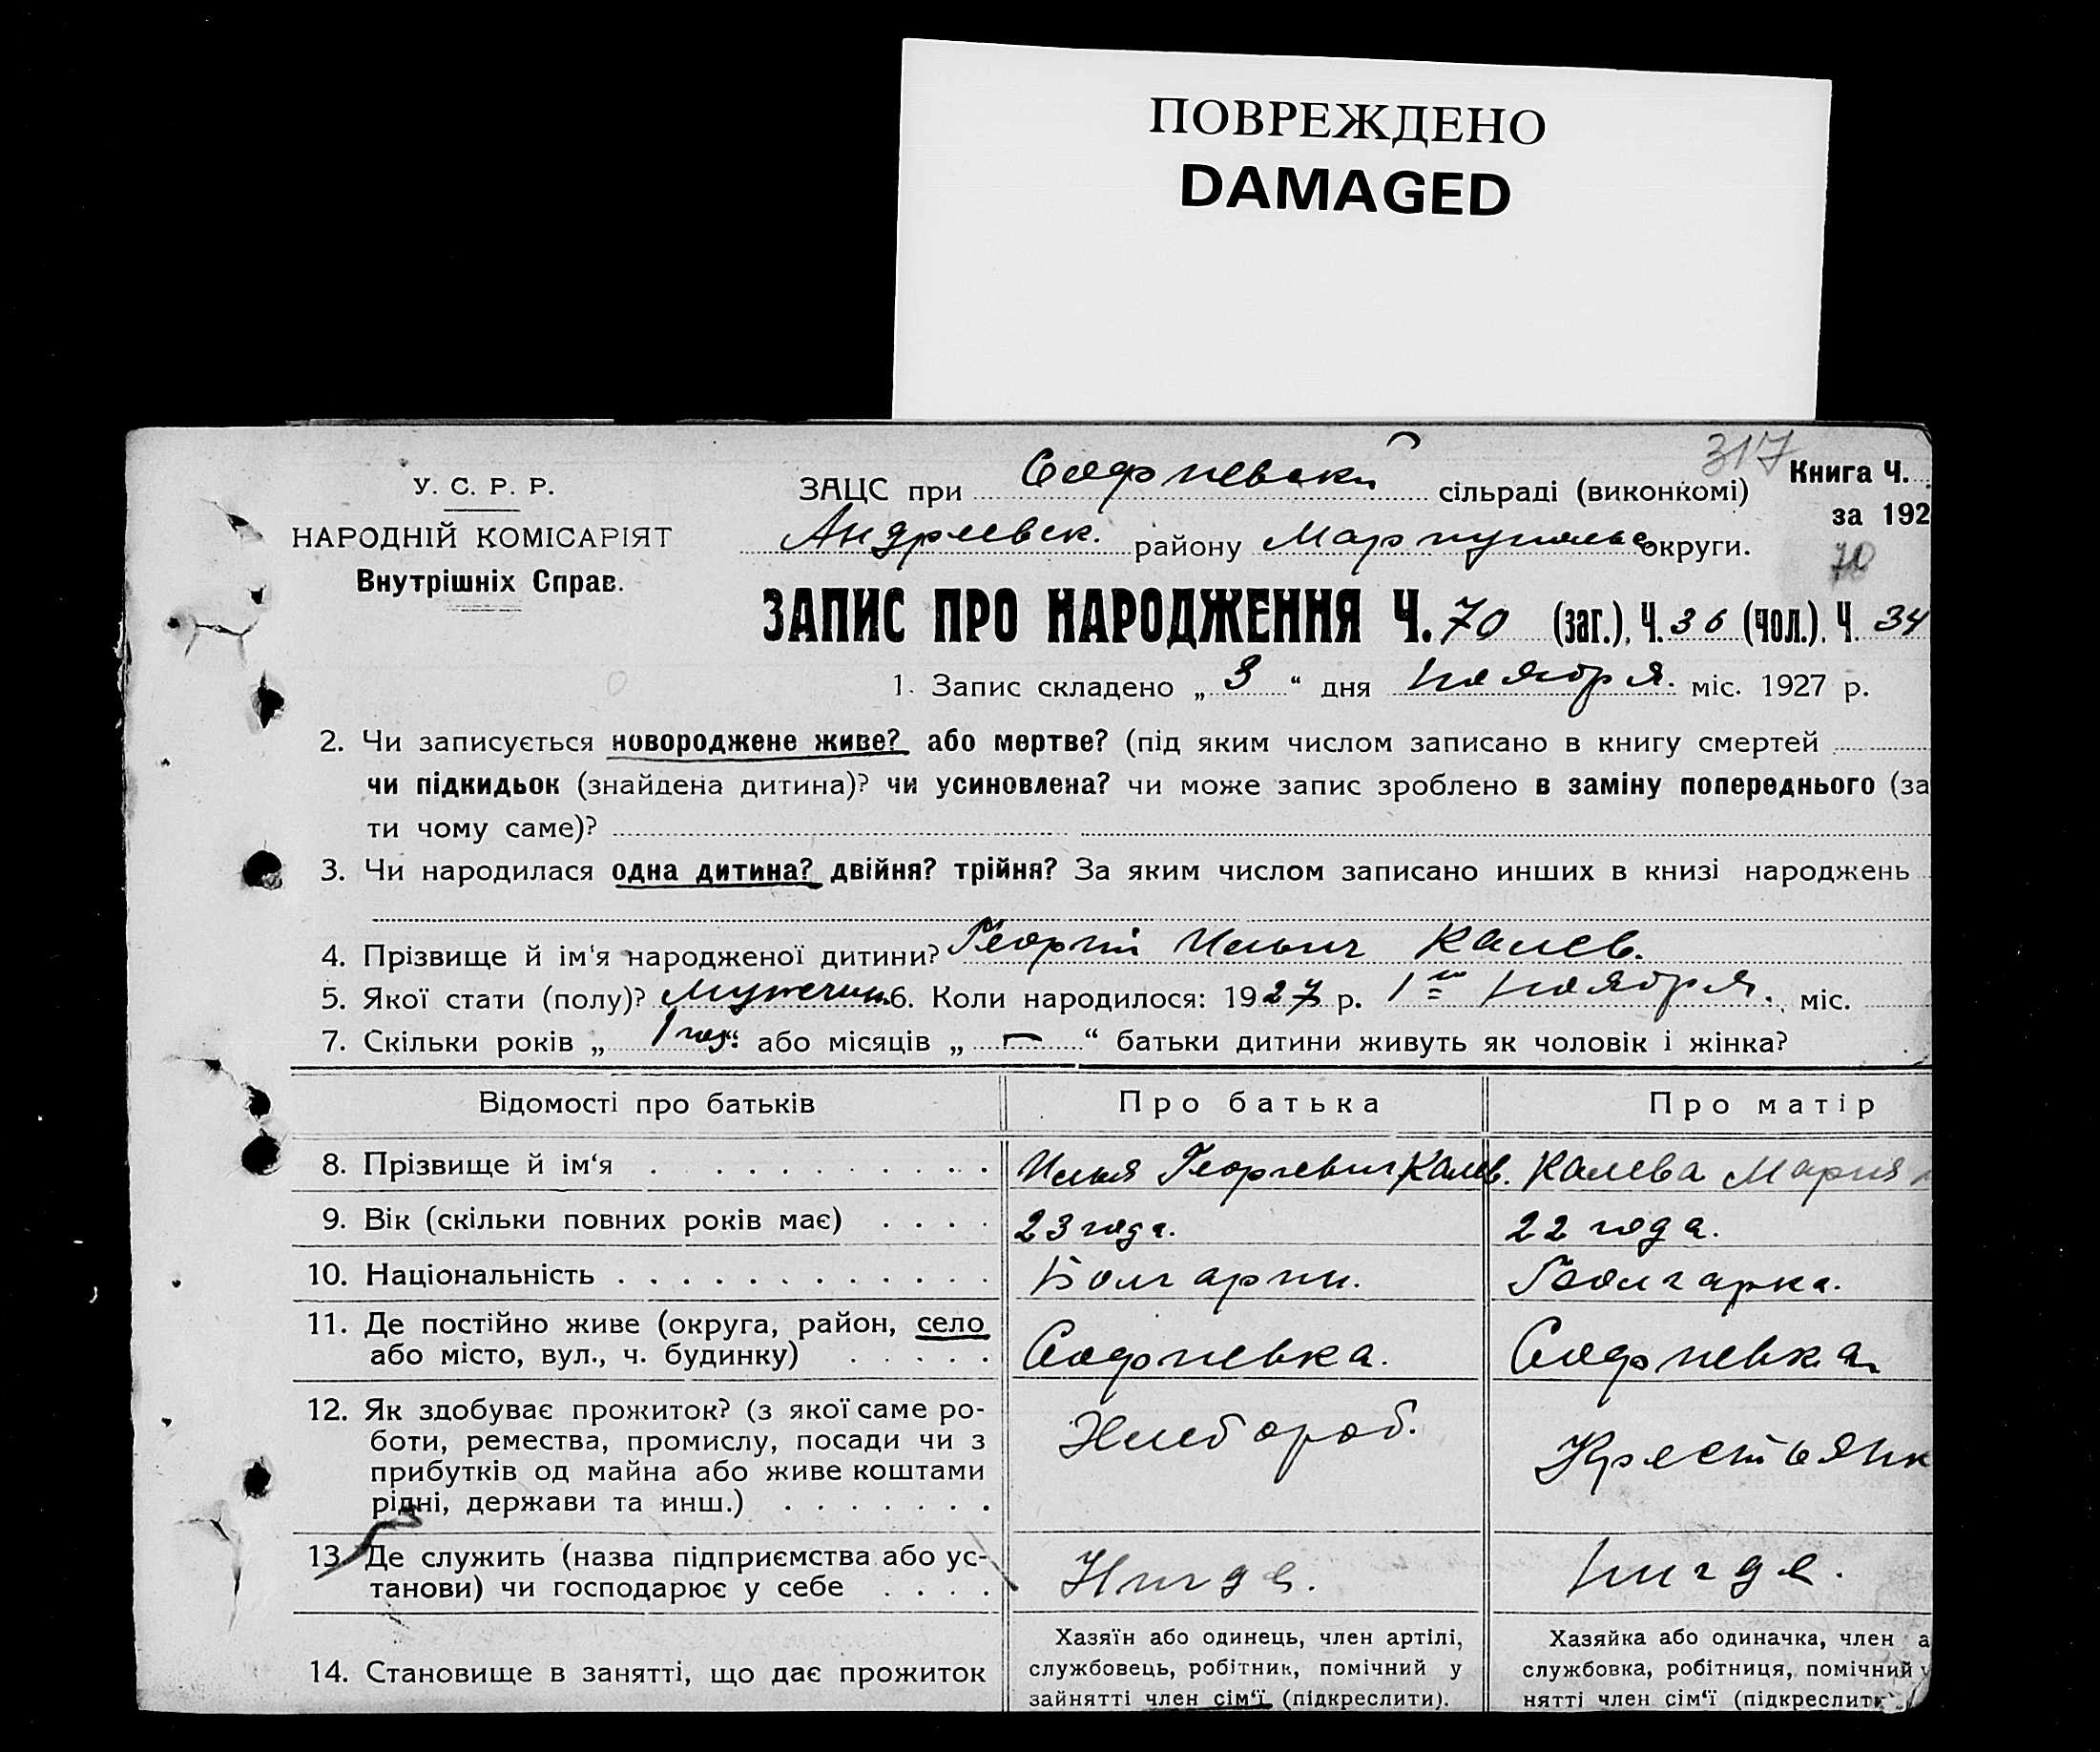 ПОВРЕЖДЕНО
DAMAGED
317
У. С. Р. Р.
НАРОДНІЙ КОМІСАРІЯТ
Внутрішніх Справ.
ЗАЦС при Софиевский сільраді (виконкомі)
Книга Ч.
за 192
Андреевск. району Мариупольс округи.
70
ЗАПИС ПРО НАРОДЖЕННЯ Ч. 70 (заг.), Ч. 36 (чол.), Ч. 34
1. Запис складено „ 3 “ дня Ноября. міс. 1927 р.
2. Чи записується новороджене живе? або мертве? (під яким числом записано в книгу смертей
чи підкидьок (знайдена дитина)? чи усиновлена? чи може запис зроблено в заміну попереднього (за
ти чому саме)?
3. Чи народилася одна дитина? двійня? трійня? За яким числом записано инших в книзі народжень
4. Прізвище й ім'я народженої дитини? Георгий Ильич Калев.
5. Якої стати (полу)? Мужчин. 6. Коли народилося: 1927 р. 1го Ноября. міс.
7. Скільки років „ 1 год. “ або місяців „ — “ батьки дитини живуть як чоловік і жінка?
Відомості про батьків
Про батька
Про матір
8. Прізвище й ім'я . . . . . . . . . . Илья Георгиевич Калев. Калева Мария
9. Вік (скільки повних років має) . . . . 23 года. 22 года.
10. Національність . . . . . . . . . . . . Болгарин. Болгарка.
11. Де постійно живе (округа, район, село
або місто, вул., ч. будинку) . . . . . Софиевка. Софиевка
12. Як здобуває прожиток? (з якої саме ро-
боти, ремества, промислу, посади чи з
прибутків од майна або живе коштами
рідні, держави та инш.) . . . . . . . Хлебороб. Крестьянк
13. Де служить (назва підприємства або ус-
танови) чи господарює у себе . . . . Нигде. Нигде.
14. Становище в занятті, що дає прожиток
Хазяїн або одинець, член артілі,
службовець, робітник, помічний у
зайнятті член сім'ї (підкреслити).
Хазяйка або одиначка, член а
службовка, робітниця, помічний у
нятті член сім'ї (підкреслити